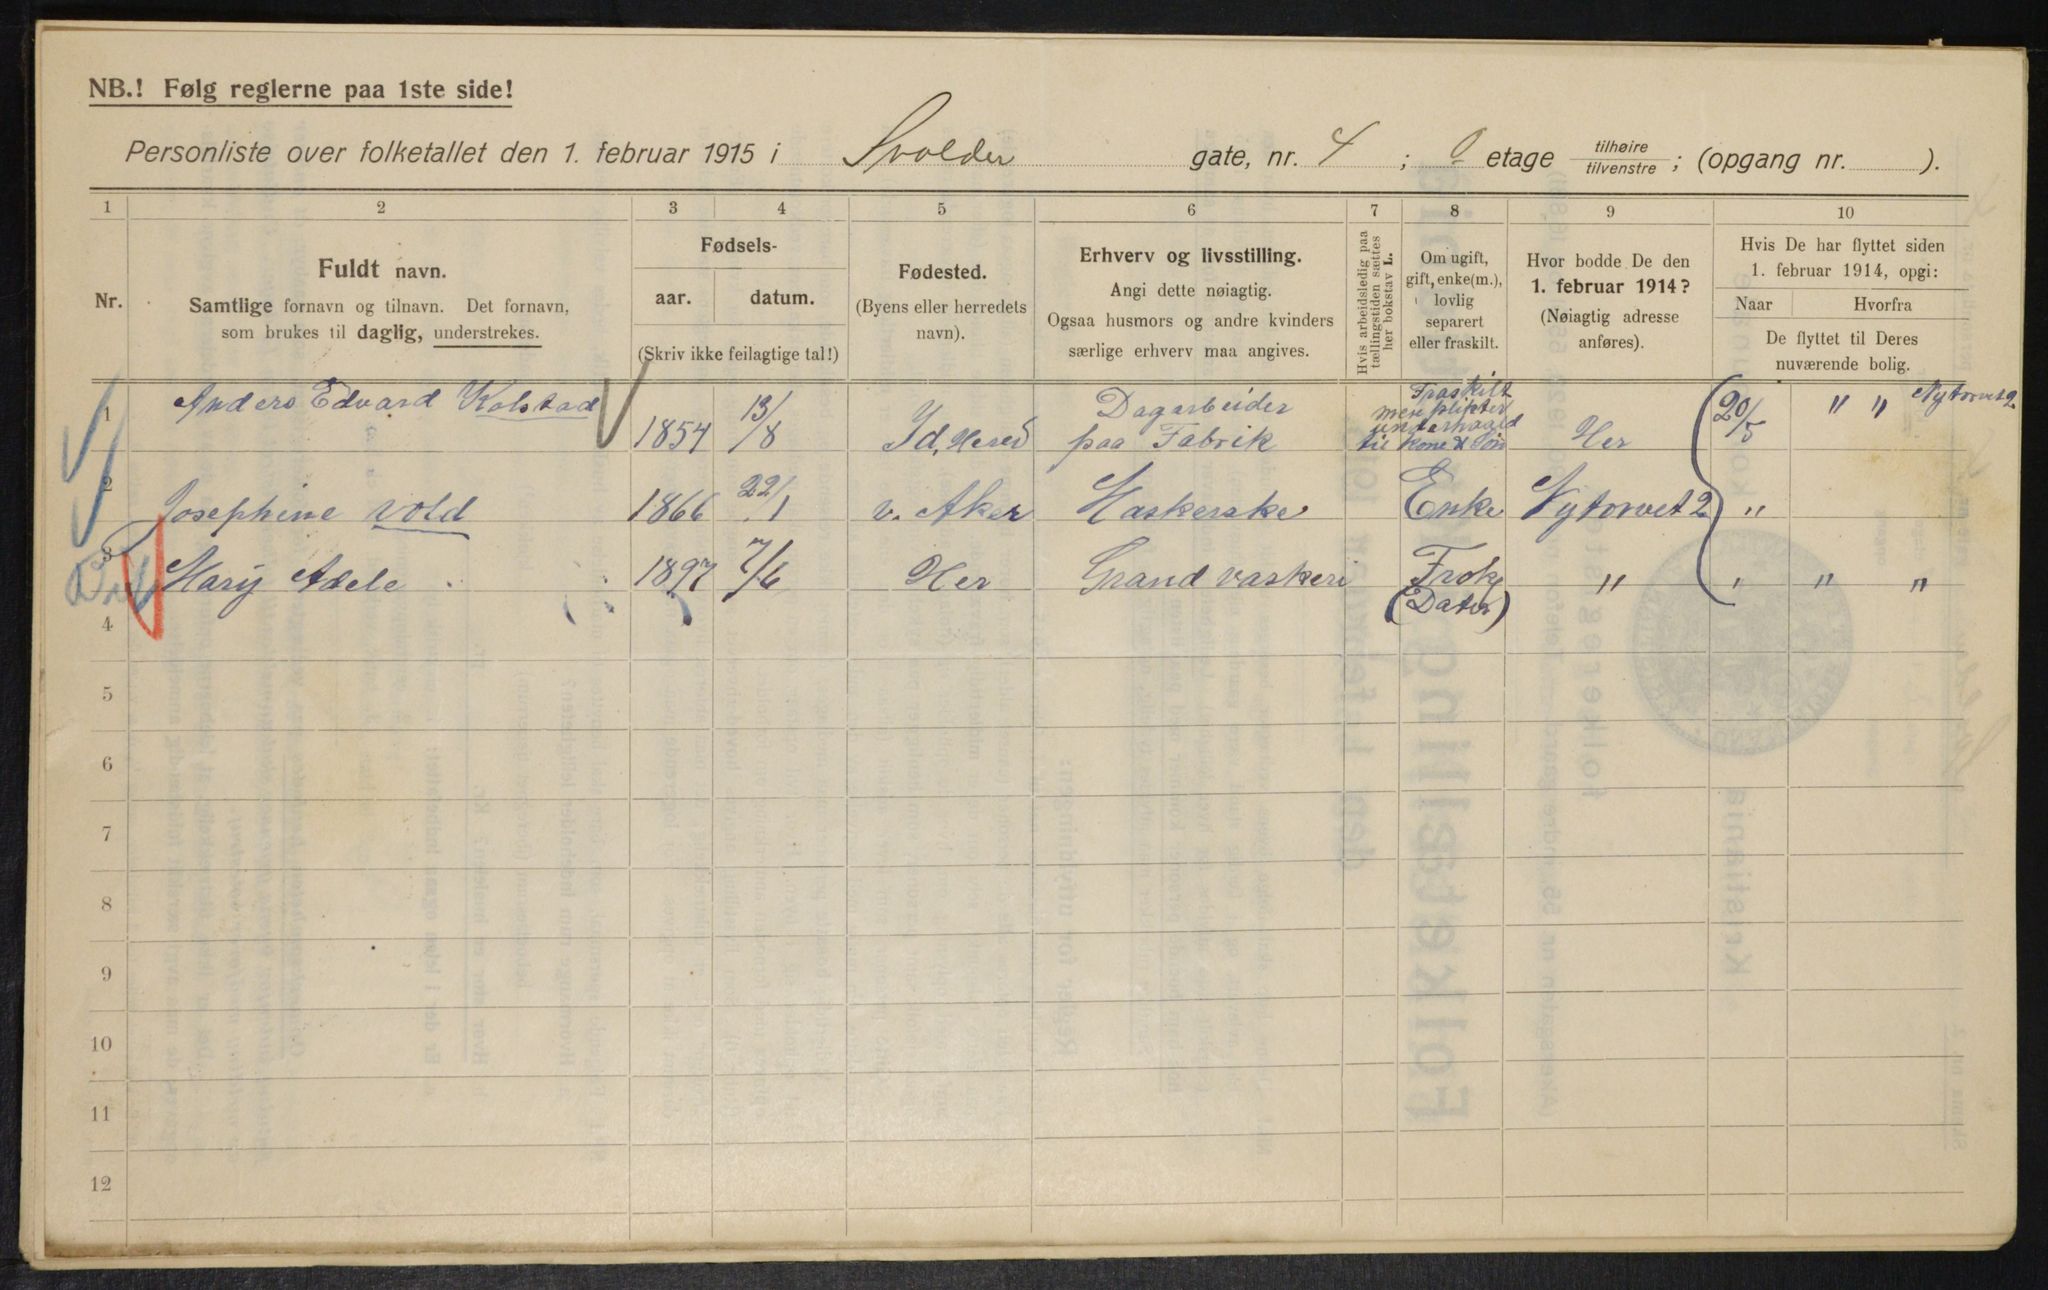 NB.! Følg reglerne paa 1ste side!
Personliste over folketallet den 1. februar 1915 i Svolder gate, nr. 4 ; 0 etage tilhøire tilvenstre ; (opgang nr. ).
1 2 3 4 5 6 7 8 9 10
Nr.
Fuldt navn.
Samtlige fornavn og tilnavn. Det fornavn,
som brukes til daglig, understrekes.
Fødsels-
aar. datum.
(Skriv ikke feilagtige tal!)
Fødested.
(Byens eller herredets
navn).
Erhverv og livsstilling.
Angi dette nøiagtig.
Ogsaa husmors og andre kvinders
særlige erhverv maa angives.
Hvis arbeidsledig paa
tællingstiden sættes
her bokstav L.
Om ugift,
gift, enke(m.),
lovlig
separert
eller fraskilt.
Hvor bodde De den
1. februar 1914?
(Nøiagtig adresse
anføres).
Hvis De har flyttet siden
1. februar 1914, opgi:
Naar Hvorfra
De flyttet til Deres
nuværende bolig.
1 Anders Edvard Kolstad 1854 13/8 Id, Hered Dagarbeider
paa Fabrik
Fraskilt
men plikter
underhold
til Kone & Søn
Her 20/5 " " Nytorvet 2
2 Josephine Vold 1866 22/1 v. Aker Vaskerske Enke Nytorvet 2 "
3 Mary Adele 1897 7/6 Her Grand vaskeri Frøk " " " "
(Dater)
4
5
6
7
8
9
10
11
12